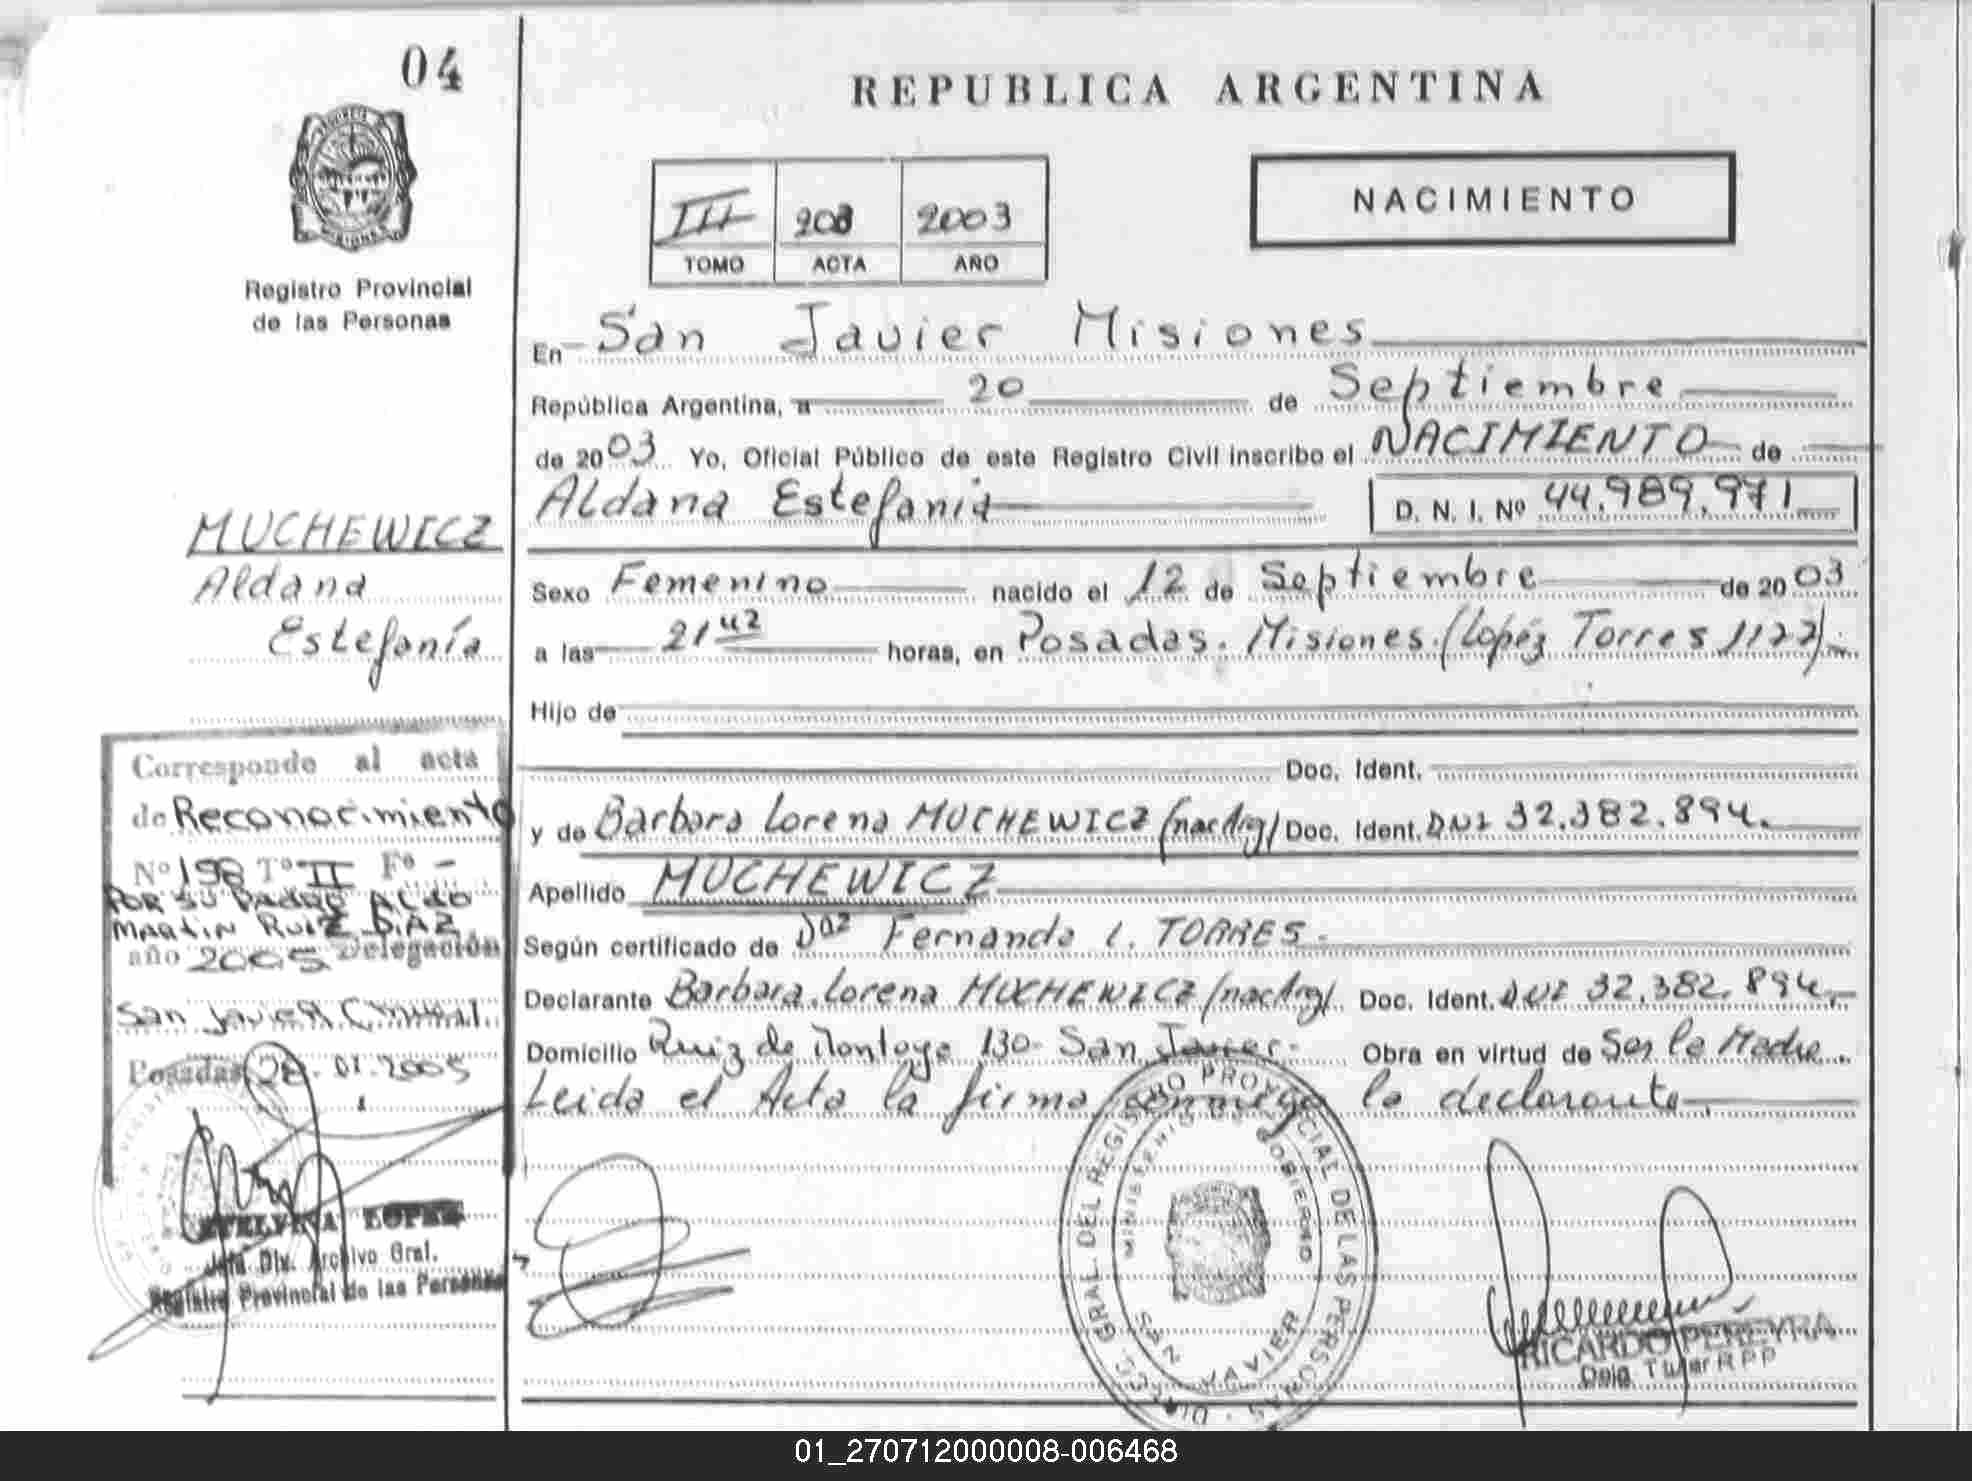 04
REPUBLICA ARGENTINA
NACIMIENTO
III 208 2003
TOMO ACTA AÑO
Registro Provincial
de las Personas
En San Javier Misiones
República Argentina, a 20 de Septiembre
de 2003 Yo, Oficial Público de este Registro Civil inscribo el NACIMIENTO de
Aldana Estefanía D. N. I. Nº 44.989.971
Sexo Femenino nacido el 12 de Septiembre de 2003
a las 21 42 horas, en Posadas. Misiones. (Lopéz Torres 1177).
Hijo de
Doc. Ident.
y de Barbara Lorena MUCHEWICZ (nac Arg) Doc. Ident. DNI 32.382.894.
Apellido MUCHEWICZ
Según certificado de Fernando L. TORRES.
Declarante Barbara Lorena MUCHEWICZ (nac Arg). Doc. Ident. DNI 32.382.894.
Domicilio Ruiz de Montoya 130 San Javier. Obra en virtud de Ser la Madre.
Leida el Acta la firma conmigo la declarante.
MUCHEWICZ
Aldana
Estefanía
Corresponde al acta
de Reconocimiento
Nº 198 Tº II Fº -
POR SU PADRE ALDO
MARTIN RUIZ DIAZ
año 2005 Delegación
San Javier
Posadas 28.01.2005
ETELVINA LOPEZ
Jefa Div. Archivo Gral.
Registro Provincial de las Personas
DIRECC. GRAL. DEL REGISTRO PROVINCIAL DE LAS PERSONAS
MINISTERIO DE GOBIERNO
SAN JAVIER
RICARDO PEREYRA
Deleg. Titular R P P
01_270712000008-006468